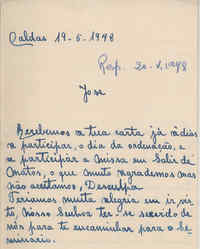 Caldas 19-5-1948
Resp. 20-V-1948
José
Recebemos a tua carta já vádios
a participar, o dia da ordenação, e
a participar a missa em Salir de
Matos, o que muito agradecemos mas
não aceitamos, Desculpa
Teriamos muita alegria em ir vis-
to, Nosso Senhor ter-se servido de
nós para te encaminhar para o Se-
minario.